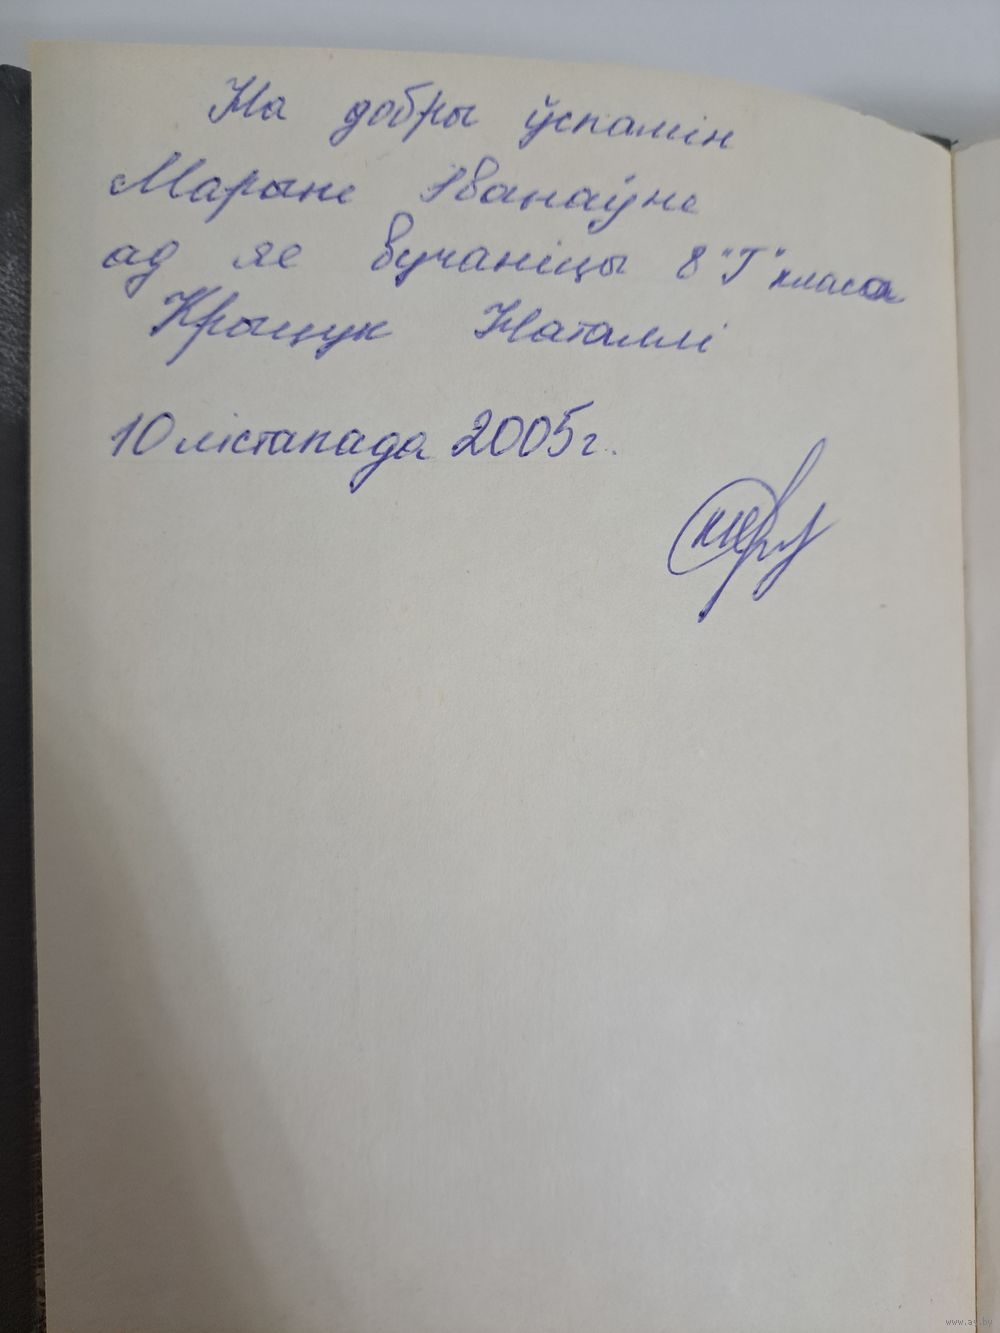 На добры ўспамін
Марыне Іванаўне
ад яе вучаніцы 8 "Г" класа
Крыщук Наталлі
10 лістапада 2005 г.
www.ay.by